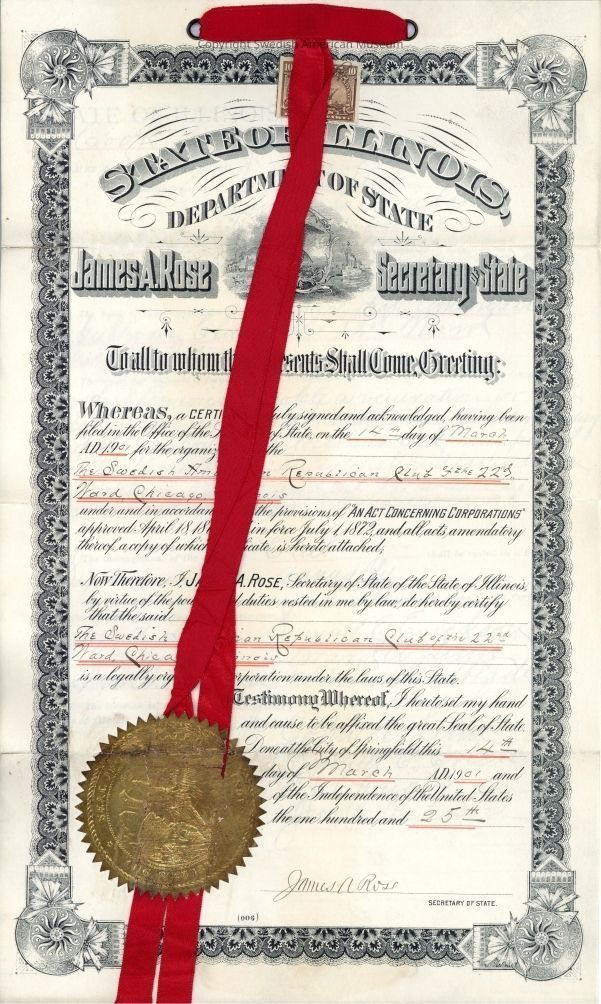 Copyright Swedish American Museum
10
STATE OF ILLINOIS,
DEPARTMENT OF STATE
James A. Rose Secretary of State
To all to whom th esents Shall Come, Greeting:
Whereas, a CERTI duly signed and acknowledged, having been
filed in the Office of the S of State, on the 14th day of March
A.D. 1901 for the organiz the
The Swedish Am an Republican Club of the 22nd
Ward Chicago Illinois
under and in accordan the provisions of "AN ACT CONCERNING CORPORATIONS"
approved April 18 187 in force July 1, 1872, and all acts amendatory
thereof, a copy of which icate, is hereto attached;
Now Therefore, I JA A. ROSE, Secretary of State of the State of Illinois,
by virtue of the pow d duties vested in me by law, do hereby certify
that the said
The Swedish can Republican Club of the 22nd
Ward Chica Illinois
is a legally org orporation under the laws of this State.
Testimony Whereof, I hereto set my hand
and cause to be affixed the great Seal of State.
Done at the City of Springfield this 14th
day of March A.D. 1901 and
of the Independence of the United States
the one hundred and 25th
James A Rose
SECRETARY OF STATE.
(006)
SEAL